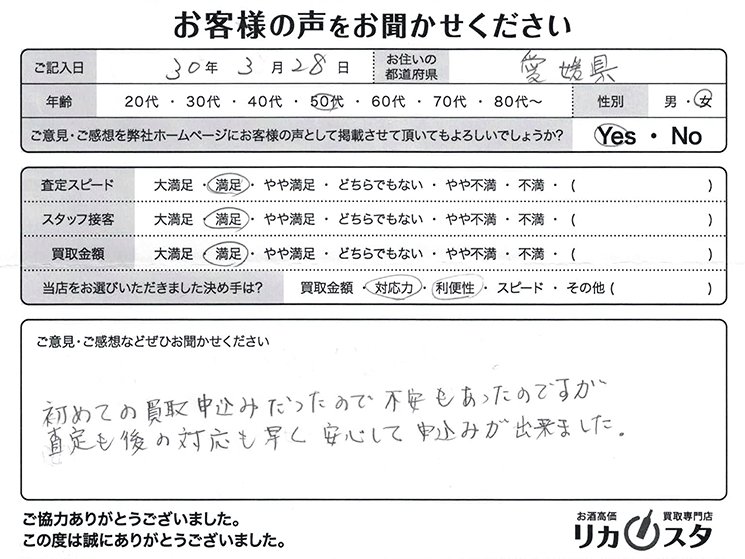 お客様の声をお聞かせください
ご記入日 30年 3月 28日 お住いの都道府県 愛媛県
年齢 20代 ・ 30代 ・ 40代 ・ 50代 ・ 60代 ・ 70代 ・ 80代～ 性別 男 ・ 女
ご意見・ご感想を弊社ホームページにお客様の声として掲載させて頂いてもよろしいでしょうか? Yes ・ No
査定スピード 大満足 ・ 満足 ・ やや満足 ・ どちらでもない ・ やや不満 ・ 不満 ・ ( )
スタッフ接客 大満足 ・ 満足 ・ やや満足 ・ どちらでもない ・ やや不満 ・ 不満 ・ ( )
買取金額 大満足 ・ 満足 ・ やや満足 ・ どちらでもない ・ やや不満 ・ 不満 ・ ( )
当店をお選びいただきました決め手は? 買取金額 ・ 対応力 ・ 利便性 ・ スピード ・ その他 ( )
ご意見・ご感想などぜひお聞かせください
初めての買取申込みだったので不安もあったのですが
査定も後の対応も早く安心して申込みが出来ました。
ご協力ありがとうございました。
この度は誠にありがとうございました。
お酒高価 買取専門店
リカスタ